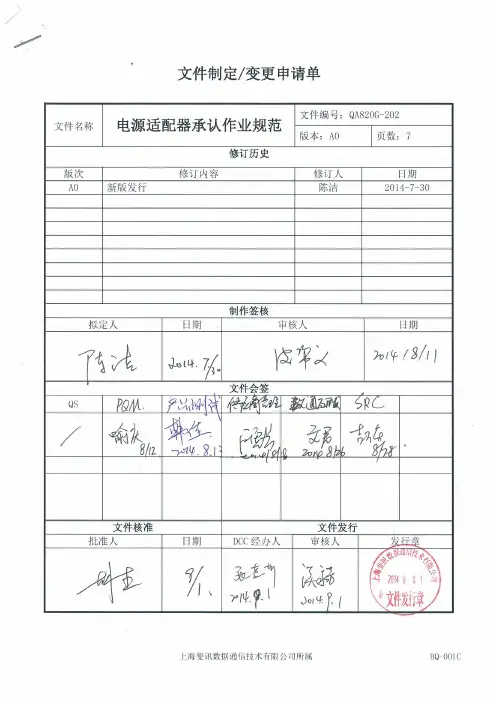 文件制定/变更申请单
文件名称
电源适配器承认作业规范
文件编号：QA820G-202
版本：A0
页数：7
修订历史
版次 修订内容 修订人 日期
A0 新版发行 陈洁 2014-7-30
制作签核
拟定人 日期 审核人 日期
陈洁 2014.7/30 2014/8/11
文件会签
QS PQM. 产品测试 供应商管理 SRC
8/12 2014.8.13 2014/8/18 2014 8/26 8/28
文件核准 文件发行
批准人 日期 DCC经办人 审核人 发行章
9/1.
2014.9.1 2014.9.1
上海斐讯数据通信技术有限公司
2014 9 0 1
文件发行章
上海斐讯数据通信技术有限公司所属
BQ-001C